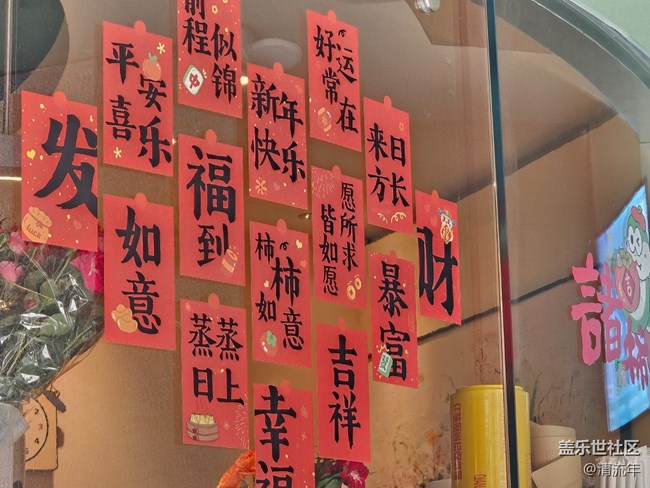 前程
似锦
好运
常在
平安
喜乐
新年
快乐
来日
方长
发
luck
福到
愿所求
皆如愿
财
如意
柿柿
如意
暴富
蒸蒸
日上
吉祥
幸福
盖乐世社区
@清流年